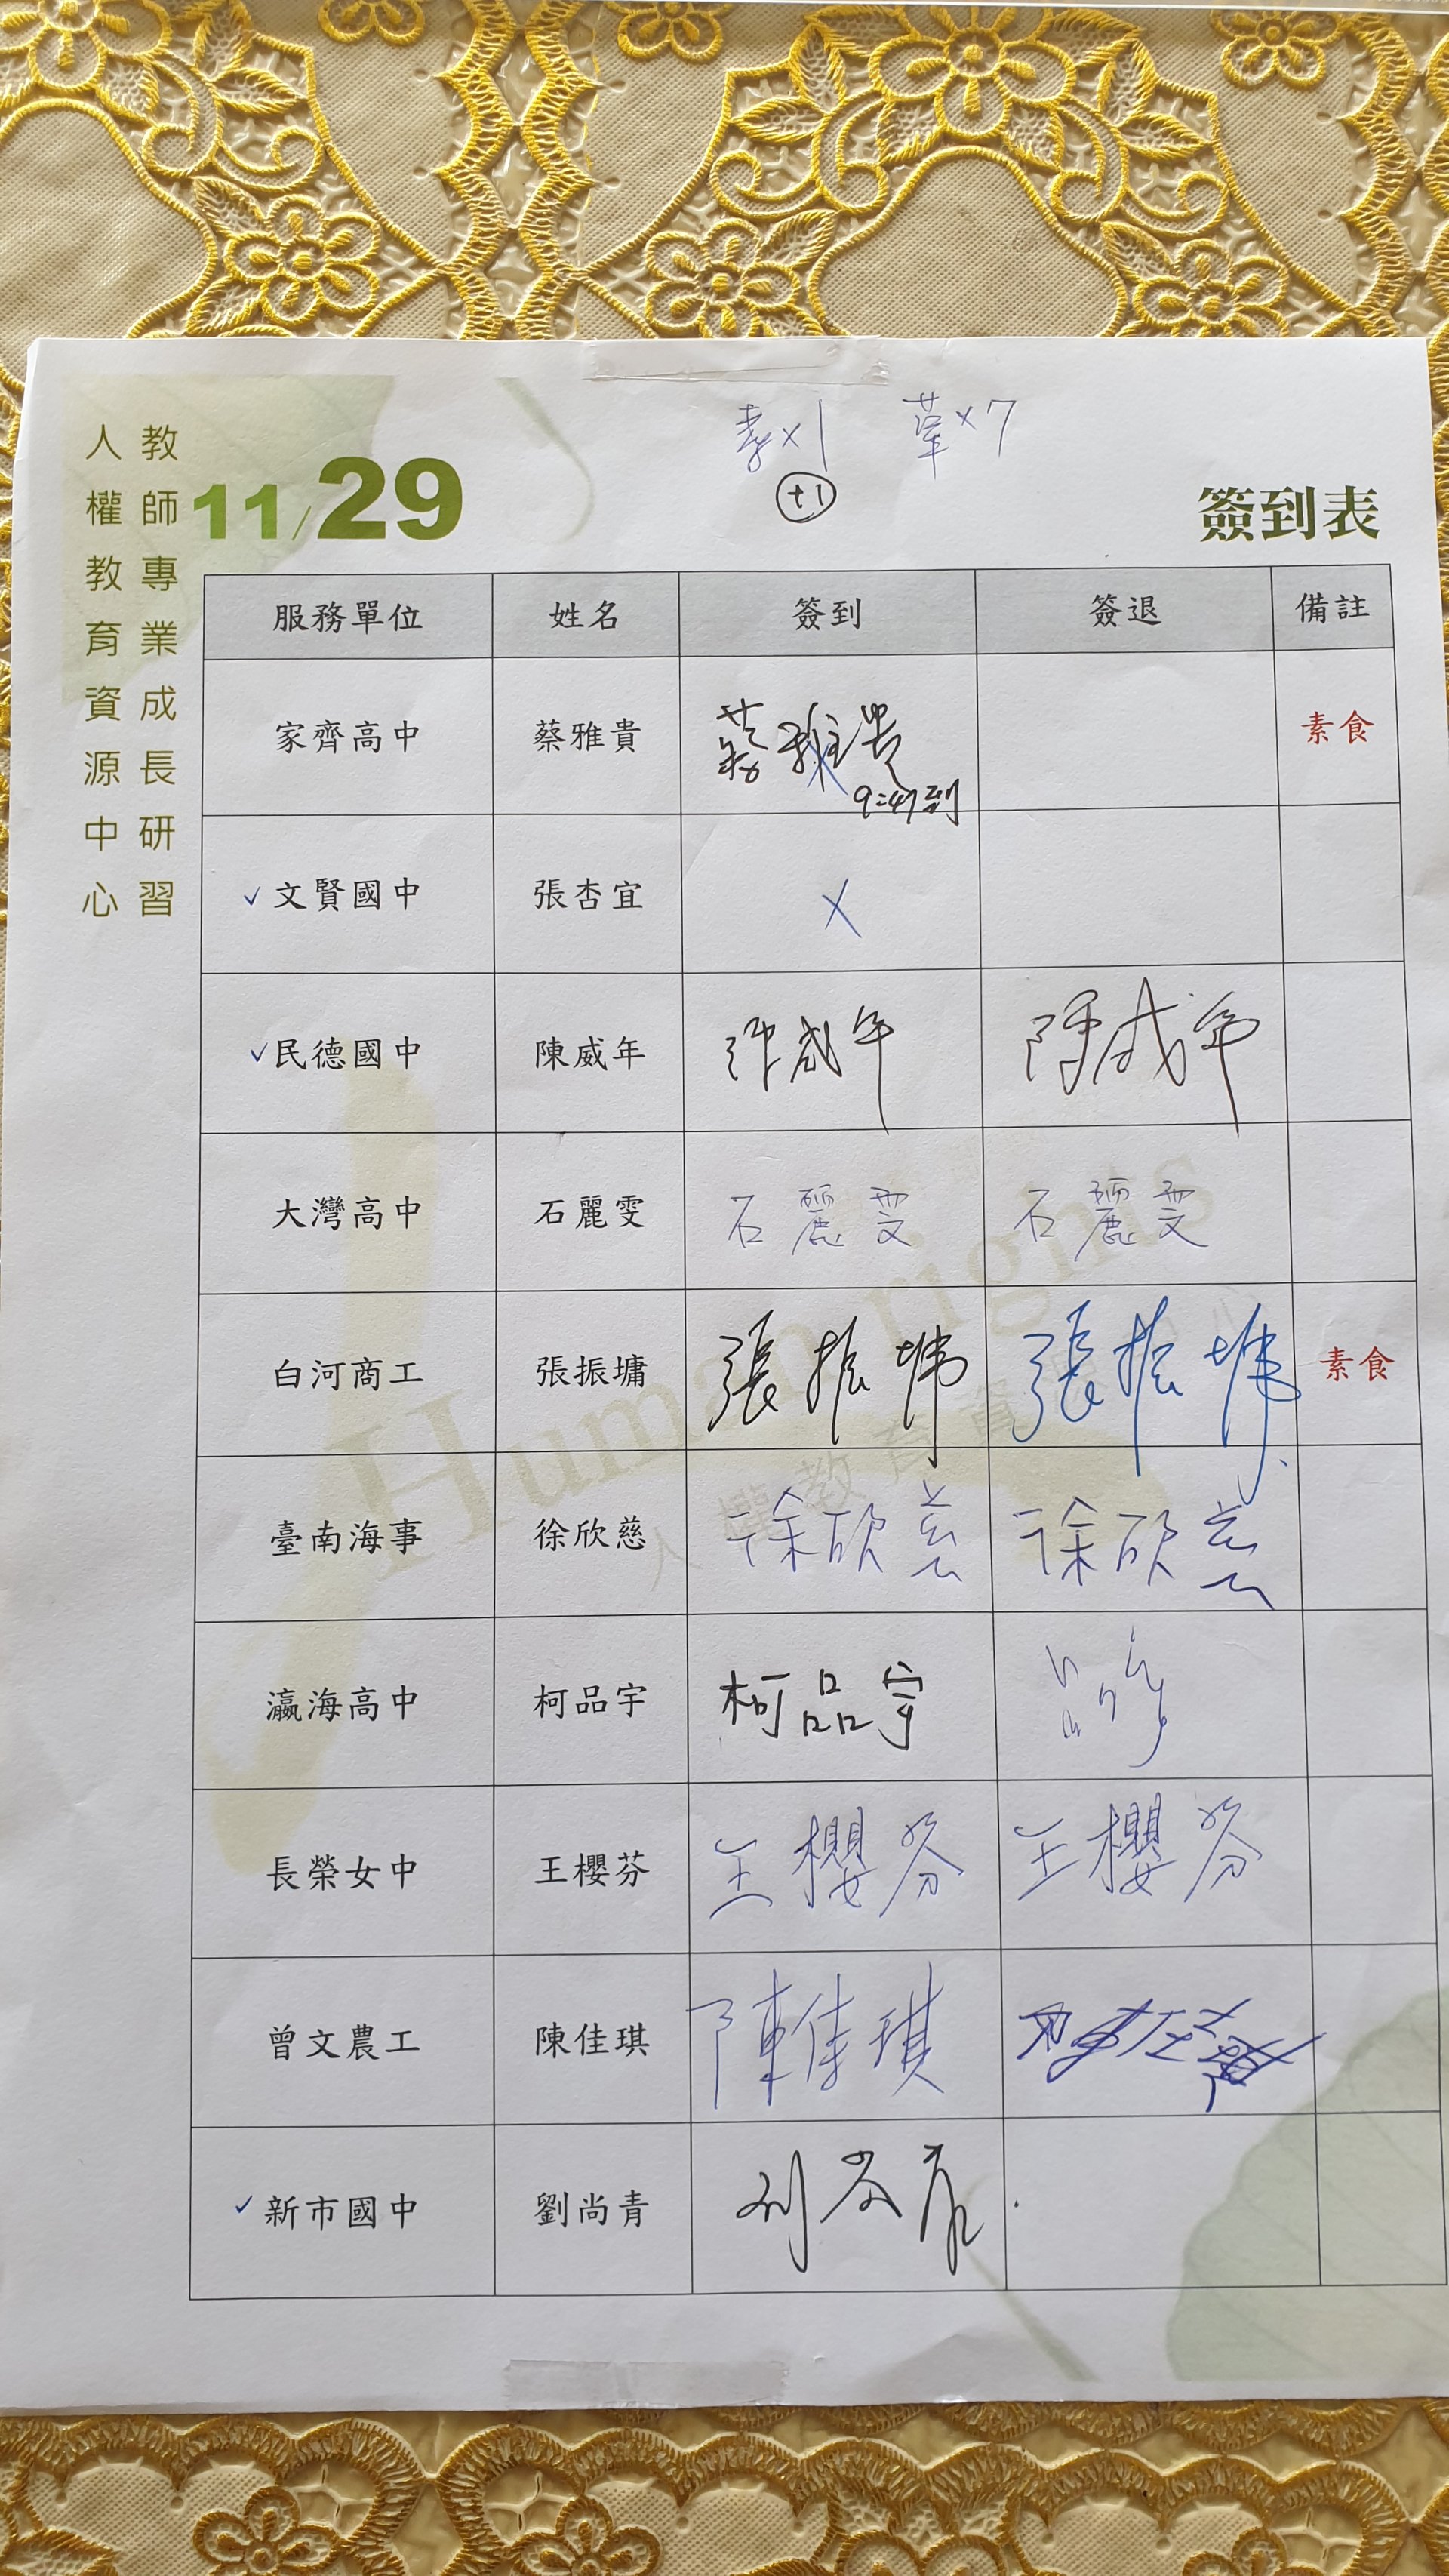 素x1 葷x7
+1
教師專業成長研習
人權教育資源中心
11/29
簽到表
服務單位 姓名 簽到 簽退 備註
家齊高中 蔡雅貴 蔡雅貴 9:47到 素食
✓文賢國中 張杏宜 X
✓民德國中 陳威年 陳威年 陳威年
大灣高中 石麗雯 石麗雯 石麗雯
白河商工 張振墉 張振墉 張振墉 素食
臺南海事 徐欣慈 徐欣慈 徐欣慈
瀛海高中 柯品宇 柯品宇
長榮女中 王櫻芬 王櫻芬 王櫻芬
曾文農工 陳佳琪 陳佳琪 陳佳琪
✓新市國中 劉尚青 刘尚青
Human rights
人權教育資源中心